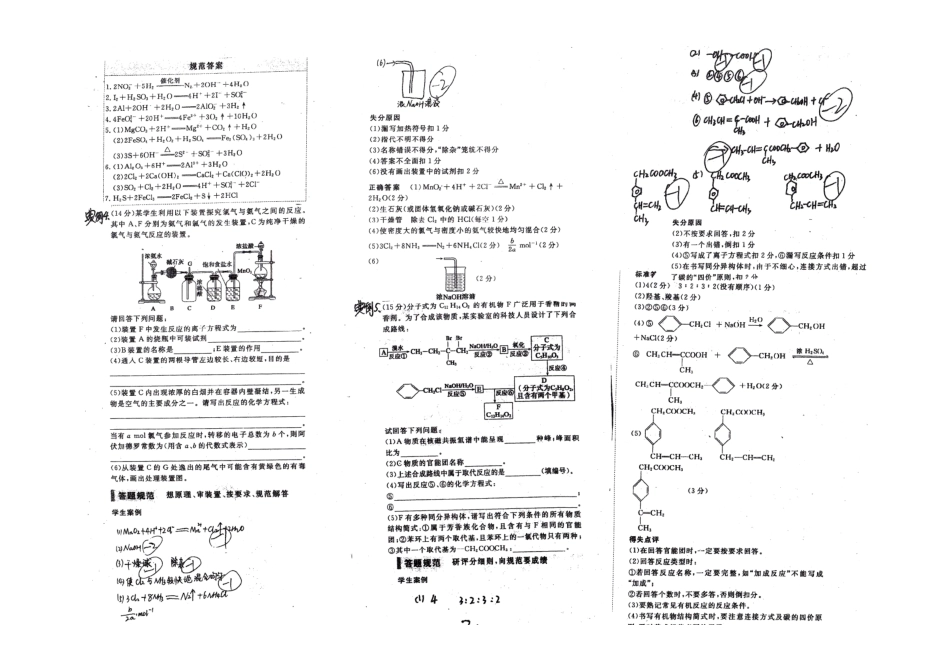 规范答案
1. 2NO₃⁻+5H₂ 催化剂 N₂+2OH⁻+4H₂O
2. I₂+H₂SO₃+H₂O══4H⁺+2I⁻+SO₄²⁻
3. 2Al+2OH⁻+2H₂O══2AlO₂⁻+3H₂↑
4. 4FeO₄²⁻+20H⁺══4Fe³⁺+3O₂↑+10H₂O
5. (1)MgCO₃+2H⁺══Mg²⁺+CO₂↑+H₂O
(2)2FeSO₄+H₂O₂+H₂SO₄══Fe₂(SO₄)₃+2H₂O
(3)3S+6OH⁻ △ 2S²⁻+SO₃²⁻+3H₂O
6. (1)Al₂O₃+6H⁺══2Al³⁺+3H₂O
(2)2Cl₂+2Ca(OH)₂══CaCl₂+Ca(ClO)₂+2H₂O
(3)SO₂+Cl₂+2H₂O══4H⁺+SO₄²⁻+2Cl⁻
7. H₂S+2FeCl₃══2FeCl₂+S↓+2HCl
(14分)某学生利用以下装置探究氯气与氨气之间的反应。
其中A、F分别为氨气和氯气的发生装置,C为纯净干燥的
氯气与氨气反应的装置。
浓氨水
碱石灰
G
饱和食盐水
浓盐酸
MnO₂
浓硫酸
A B C D E F
请回答下列问题:
(1)装置F中发生反应的离子方程式为
(2)装置A的烧瓶中可装试剂
(3)B装置的名称是 ;E装置的作用
(4)通入C装置的两根导管左边较长、右边较短,目的是
(5)装置C内出现浓厚的白烟并在容器内壁凝结,另一生成
物是空气的主要成分之一。请写出反应的化学方程式:
当有a mol氯气参加反应时,转移的电子总数为b个,则阿
伏加德罗常数为(用含a、b的代数式表示)
(6)从装置C的G处逸出的尾气中可能含有黄绿色的有毒
气体,画出处理装置图。
答题规范 想原理、审装置、按要求、规范解答
学生案例
(2)NaOH -2
(3)干燥
(5)3Cl₂+8NH₃══N₂↑+6NH₄Cl
b/2a mol⁻¹
(6)
浓NaOH溶液
-2
失分原因
(1)漏写加热符号扣1分
(2)指代不明不得分
(3)名称错误不得分,“除杂”笼统不得分
(4)答案不全面扣1分
(6)没有画出装置中的试剂扣2分
正确答案 (1)MnO₂+4H⁺+2Cl⁻ △ Mn²⁺+Cl₂↑+
2H₂O(2分)
(2)生石灰(或固体氢氧化钠或碱石灰)(2分)
(3)干燥管 除去Cl₂中的HCl(每空1分)
(4)使密度大的氯气与密度小的氨气较快地均匀混合(2分)
(5)3Cl₂+8NH₃══N₂+6NH₄Cl(2分) b/2a mol⁻¹(2分)
(6)
(2分)
浓NaOH溶液
(15分)分子式为C₁₂H₁₄O₂的有机物F广泛用于香精的调
香剂。为了合成该物质,某实验室的科技人员设计了下列合
成路线:
Br Br
A 溴水 反应① CH₃—CH₂—C—CH₂ NaOH/H₂O 反应② B 氧化 反应③ C 分子式为
CH₃
反应④
CH₂Cl NaOH/H₂O 反应⑤ E 反应⑥
D
且含有两个甲基)
F
C₁₂H₁₄O₂
试回答下列问题:
(1)A物质在核磁共振氢谱中能呈现 种峰;峰面积
比为
(2)C物质的官能团名称
(3)上述合成路线中属于取代反应的是 (填编号)。
(4)写出反应⑤、⑥的化学方程式:
⑤
⑥
(5)F有多种同分异构体,请写出符合下列条件的所有物质
结构简式:①属于芳香族化合物,且含有与F相同的官能
团;②苯环上有两个取代基,且苯环上的一氯代物只有两种;
③其中一个取代基为—CH₂COOCH₃:
答题规范 研评分细则,向规范要成绩
学生案例
(1) 4 3:2:3:2
(2) —OH —COOH -1
-1
-2
-1
CH₂COOCH₃
CH=CH₂
CH₃
-1
失分原因
(2)不按要求回答,扣2分
(3)有一个出错,倒扣1分
(4)⑤写成了离子方程式扣2分,⑥漏写反应条件扣1分
(5)在书写同分异构体时,由于不细心,连接方式出错,超过
了碳的“四价”原则,扣
(1)4(2分) 3∶2∶3∶2(没有顺序)(1分)
(2)羟基、羧基(2分)
(3)②⑤⑥(3分)
(4)⑤ CH₂Cl + NaOH H₂O CH₂OH
+NaCl(2分)
⑥ CH₃CH═CCOOH + CH₂OH 浓H₂SO₄ △
CH₃
CH₃CH═CCOOCH₂ +H₂O(2分)
CH₃
CH₂COOCH₃ CH₂COOCH₃
(5)
CH═CH—CH₃ CH₂—CH═CH₂
CH₂COOCH₃
(3分)
C═CH₂
CH₃
得失点评
(1)在回答官能团时,一定要按要求回答。
(2)回答反应类型时:
①若回答反应名称,一定要完整,如“加成反应”不能写成
“加成”;
②若回答个数时,不要多答,否则倒扣分。
(3)要熟记常见有机反应的反应条件。
(4)书写有机物结构简式时,要注意连接方式及碳的四价原